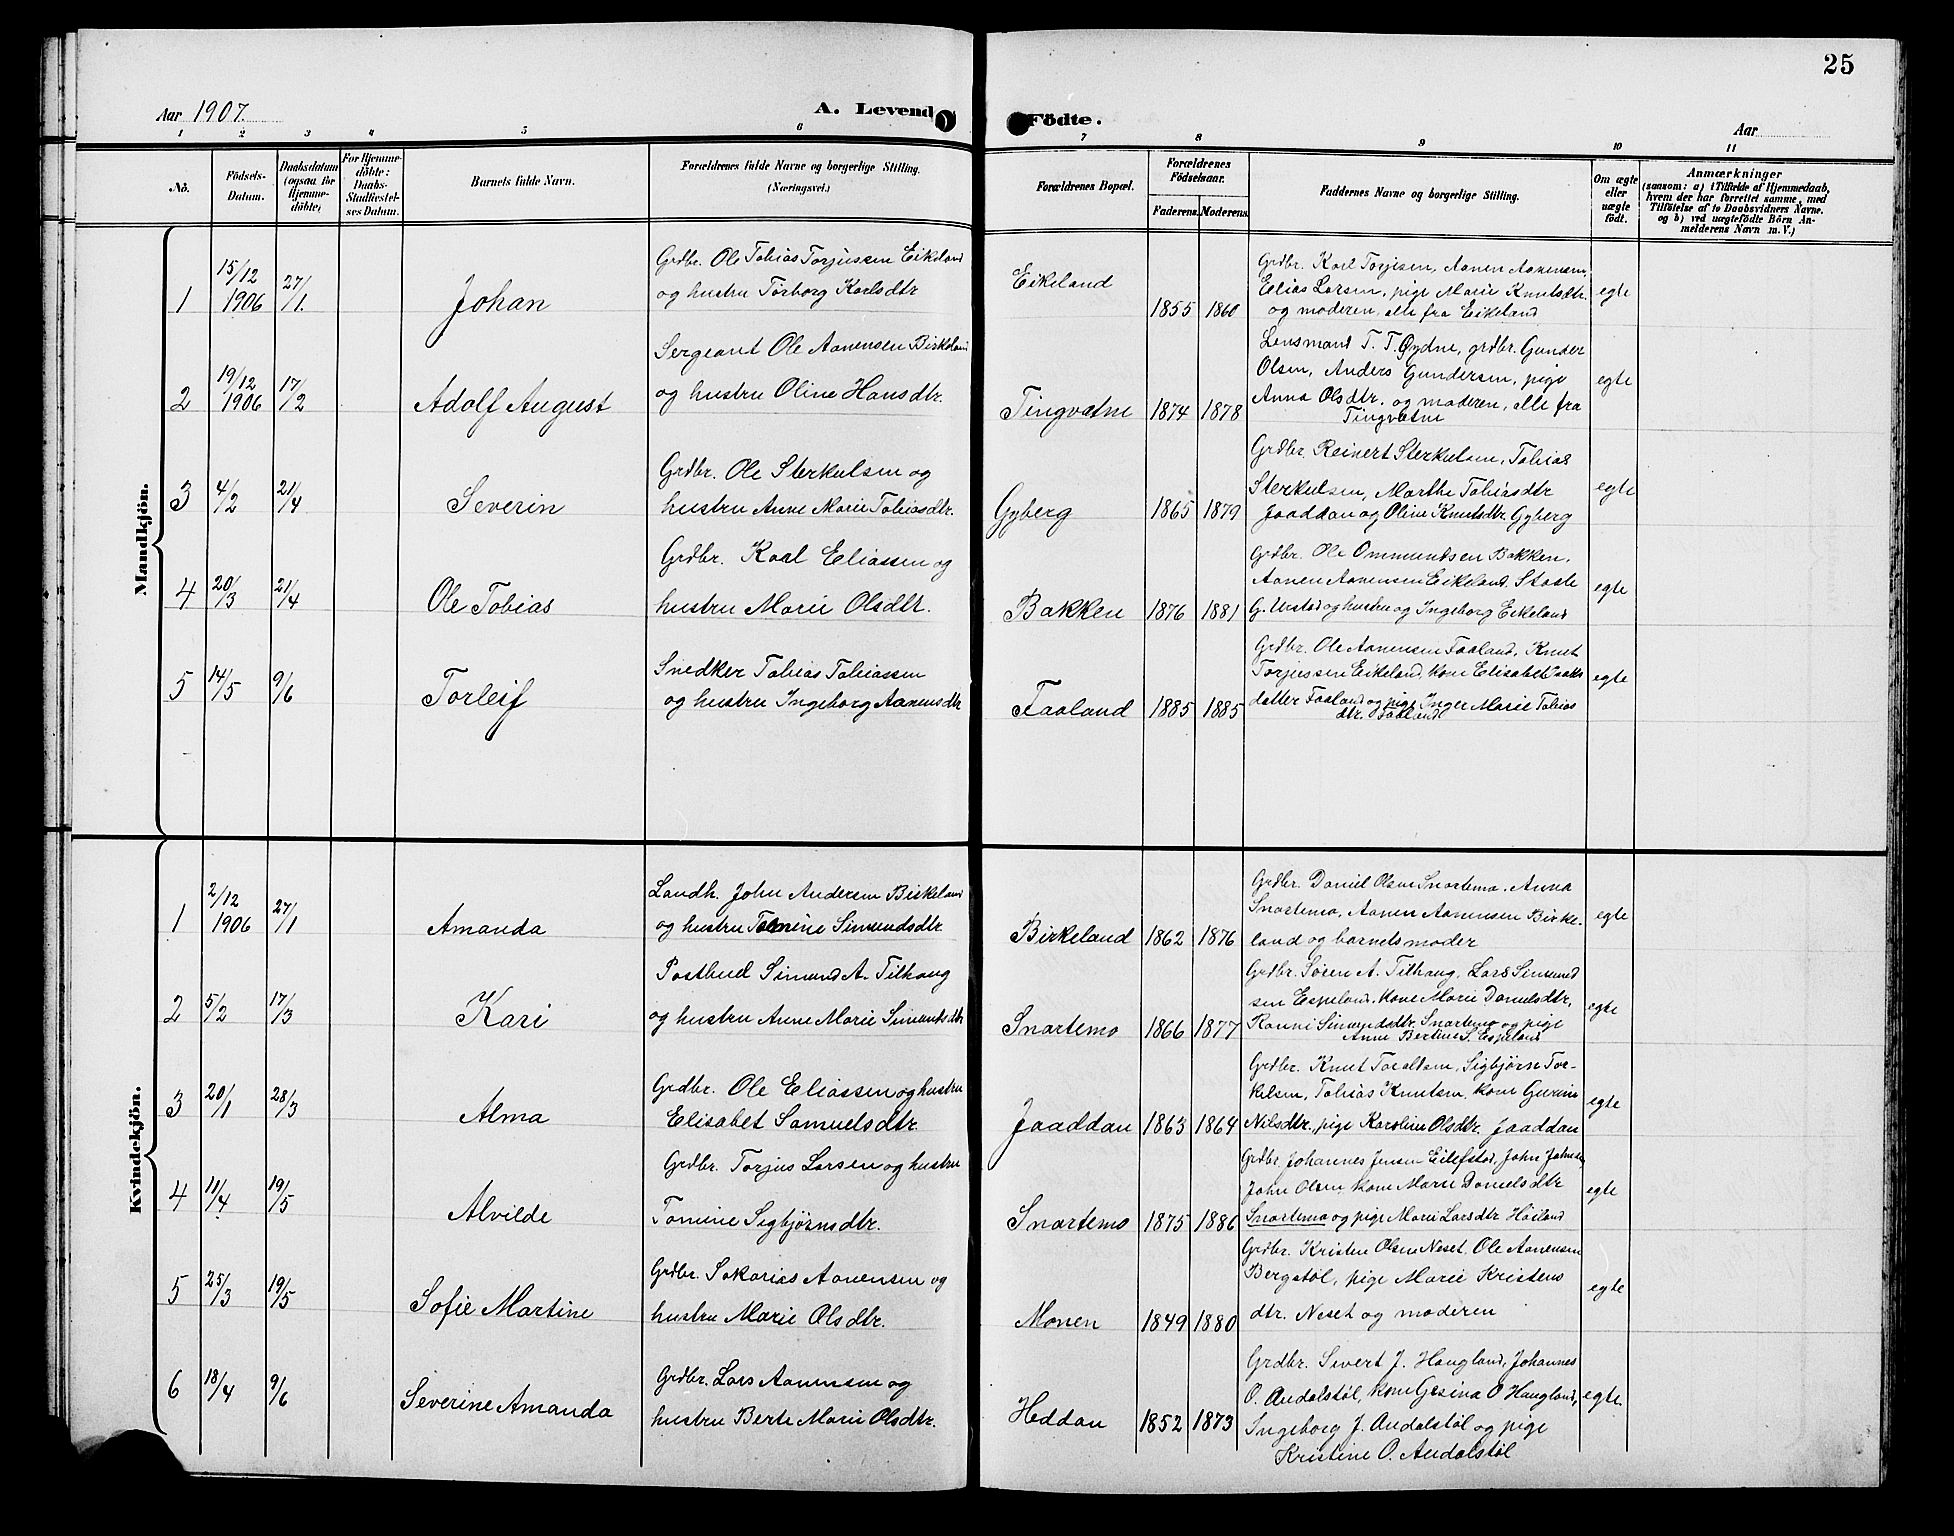 25
Aar 1907.
A. Levend
Födte.
Aar
1 2 3 4 5 6 7 8 9 10 11
No.
Födsels-Datum.
Daabsdatum (ogsaa for Hjemme-döbte)
For Hjemme-döbte: Daabs-Stadfæstel-ses Datum.
Barnets fulde Navn.
Forældrenes fulde Navne og borgerlige Stilling.
(Næringsvei.)
Forældrenes Bopæl.
Forældrenes Födselsaar.
Faderens. Moderens.
Faddernes Navne og borgerlige Stilling.
Om ægte eller uægte födt.
Anmærkninger
(saasom: a) i Tilfælde af Hjemmedaab,
hvem der har forrettet samme, med
Tilföielse af to Daabsvidners Navne.
og b) ved uægtefödte Börn An-
melderens Navn m. V.)
Mandkjön.
1 15/12 1906 27/1. Johan
Grdbr. Ole Tobias Torjussen Eikeland
og hustru Torborg Karlsdtr
Eikeland 1855 1860
Grdbr. Karl Torjisen, Aanen Aanensen,
Elias Larsen, pige Marie Knutsdtr.
og moderen, alle fra Eikeland
egte
2 19/12 1906 17/2 Adolf August
Sergeant Ole Aanensen Birkeland
og hustru Oline Hansdtr.
Tingvatne 1874 1878
Lensmand T. T. Øydne, grdbr. Gunder
Olsen, Anders Gundersen, pige
Anna Olsdtr. og moderen, alle fra
Tingvatne
egte
3 4/2 21/4 Severin
Grdbr. Ole Sterkulsen og
hustru Anne Marie Tobiasdtr.
Gyberg 1865 1879
Grdbr. Reinert Sterkulsen, Tobias
Sterkulsen, Marthe Tobiasdtr
Jaaddan og Oline Knutsdtr. Gyberg
egte
4 20/3 21/4 Ole Tobias
Grdbr. Karl Eliassen og
hustru Marie Olsdtr.
Bakken 1876 1881
Grdbr. Ole Ommundsen Bakken,
Aanen Aanensen Eikeland,
G. Urstad og hustru og Ingeborg Eikeland
egte
5 14/5 9/6 Torleif
Snedker Tobias Tobiassen
og hustru Ingeborg Aanensdtr
Faaland 1885 1885
Grdbr. Ole Aanensen Faaland, Knut
Torjussen Eikeland, kone Elisabet
datter Faaland og pige Inger Marie Tobias
dtr. Faaland
egte
Kvindekjön.
1 2/12 1906 27/1 Amanda
Landh. John Andersen Birkeland
og hustru Tomine Simundsdtr
Birkeland 1862 1876
Grdbr. Daniel Olsen Snartemo, Anna
Snartemo, Aanen Aanensen Birke-
land og barnets moder
egte
2 5/2 17/3 Kari
Postbud Simund A. Tilhaug
og hustru Anne Marie Simundsdtr
Snartemo 1866 1877
Grdbr. Søren A. Tilhaug, Lars Simund
sen Espeland, kone Marie Danielsdtr,
Ranni Simundsdtr. Snartemo og pige
Anne Bertine S. Espeland
egte
3 20/1 28/3 Alma
Grdbr. Ole Eliassen og hustru
Elisabet Samuelsdtr.
Jaaddan 1863 1864
Grdbr. Knut Toraldsen, Sigbjørn Tor-
kelsen, Tobias Knutsen, kone Gurine
Nilsdtr., pige Karoline Olsdtr. Jaaddan
egte
4 11/4 19/5 Alvilde
Grdbr. Torjus Larsen og hustru
Tomine Sigbjørnsdtr.
Snartemo 1875 1886
Grdbr. Johannes Jensen Eilefstad, John Johnsen
John Olsen, kone Marie Danielsdtr
Snartemo og pige Marie Larsdtr Høiland
egte
5 25/3 19/5 Sofie Martine
Grdbr. Sakarias Aanensen og
hustru Marie Olsdtr.
Monen 1849 1880
Grdbr. Kristen Olsen Neset, Ole Aanensen
Bergstøl, pige Marie Kristens
dtr. Neset og moderen
egte
6 18/4 9/6 Severine Amanda
Grdbr. Lars Aanensen og
hustru Berte Marie Olsdtr.
Heddan 1852 1873
Grdbr. Sivert J. Haugland, Johannes
O. Audalstøl, kone Gesina O Haugland,
Ingeborg J. Audalstøl og pige
Kristine O. Audalstøl
egte